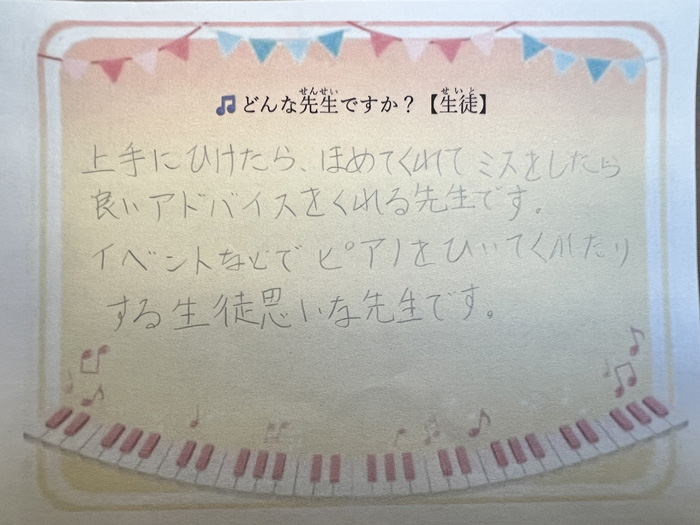 どんな先生ですか？【生徒】
上手にひけたら、ほめてくれてミスをしたら
良いアドバイスをくれる先生です。
イベントなどでピアノをひいてくれたり
する生徒思いな先生です。